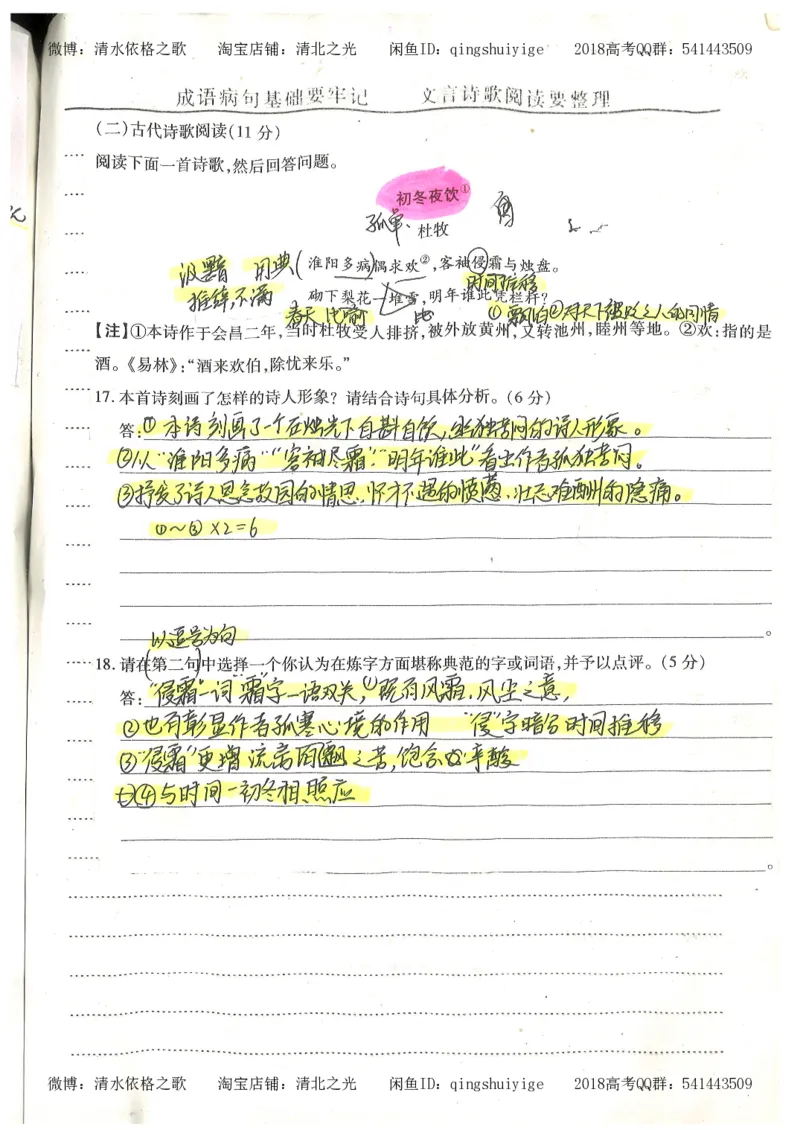 微博：清水依格之歌 淘宝店铺：清北之光 闲鱼ID：qingshuiyige 2018高考QQ群：541443509
成语病句基础要牢记 文言诗歌阅读要整理
(二)古代诗歌阅读(11分)
阅读下面一首诗歌,然后回答问题。
初冬夜饮①
孤单、
杜牧
汲黯 用典
淮阳多病偶求欢②,客袖侵霜与烛盘。
推辞,不满
时间推移
砌下梨花一堆雪,明年谁此凭栏杆?
春天 比喻
①飘泊②对天下被贬之人的同情
【注】①本诗作于会昌二年,当时杜牧受人排挤,被外放黄州,又转池州,睦州等地。②欢:指的是
酒。《易林》:“酒来欢伯,除忧来乐。”
17.本首诗刻画了怎样的诗人形象? 请结合诗句具体分析。(6分)
答:①本诗刻画了一个在烛光下自斟自饮,孤独苦闷的诗人形象。
②从“淮阳多病”“客袖侵霜”“明年谁此”看出作者孤独苦闷。
③抒发了诗人思念故园的情思,怀才不遇的愤懑,壮志难酬的隐痛。
①~③×2=6
以逗号为句
18.请在第二句中选择一个你认为在炼字方面堪称典范的字或词语,并予以点评。(5分)
答:“侵霜”一词“霜”字一语双关,①既有风霜,风尘之意,
②也有彰显作者孤寒心境的作用 “侵”字暗含时间推移
③“侵霜”更增流离 之苦,饱含 辛酸
④与时间-初冬相照应
微博：清水依格之歌 淘宝店铺：清北之光 闲鱼ID：qingshuiyige 2018高考QQ群：541443509